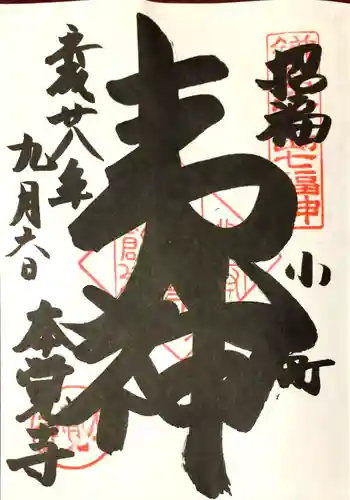 招福
小町
寿神
平成廿八年
九月六日
本覚寺
七福神